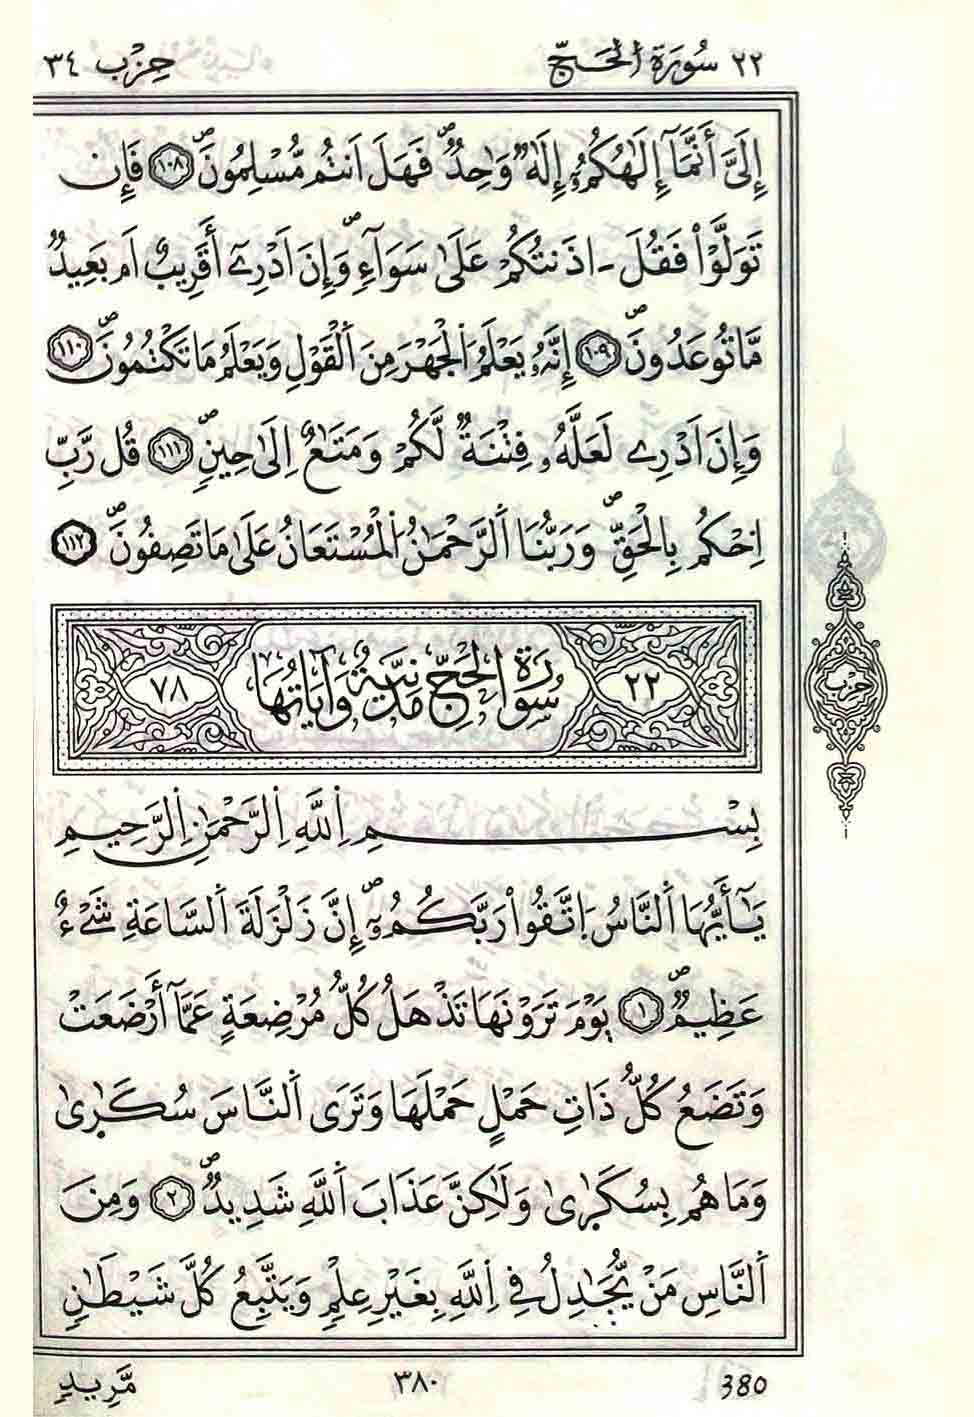 ٢٢ سُورَةُ الحَجّ
حِزْب ٣٤
إِلَىَّ أَنَّمَآ إِلَٰهُكُمُۥٓ إِلَٰهٞ وَٰحِدٞۖ فَهَلَ اَنتُم مُّسْلِمُونَۖ ١٠٨ فَإِن
تَوَلَّوْاْ فَقُلَ ـ اذَنتُكُمْ عَلَىٰ سَوَآءٖۖ وَإِنَ اَدْرِےٓ أَقَرِيبٌ اَم بَعِيدٞ
مَّا تُوعَدُونَۖ ١٠٩ إِنَّهُۥ يَعْلَمُ اُ۬لْجَهْرَ مِنَ اَ۬لْقَوْلِ وَيَعْلَمُ مَا تَكْتُمُونَۖ ١١٠
وَإِنَ اَدْرِے لَعَلَّهُۥ فِتْنَةٞ لَّكُمْ وَمَتَٰعٌ اِلَىٰ حِينٖۖ ١١١ قُل رَّبِّ
اِحْكُم بِالْحَقِّۖ وَرَبُّنَا اَ۬لرَّحْمَٰنُ اُ۬لْمُسْتَعَانُ عَلَىٰ مَا تَصِفُونَۖ ١١٢
حزب
٢٢ سُورَةُ الحَجّ مَدَنِيَّةٌ وَآيَاتُهَا ٧٨
بِسْمِ اِ۬للَّهِ اِ۬لرَّحْمَٰنِ اِ۬لرَّحِيمِ
يَٰٓأَيُّهَا اَ۬لنَّاسُ اُ۪تَّقُواْ رَبَّكُمُۥٓۖ إِنَّ زَلْزَلَةَ اَ۬لسَّاعَةِ شَےْءٌ
عَظِيمٞۖ ١ يَوْمَ تَرَوْنَهَا تَذْهَلُ كُلُّ مُرْضِعَةٍ عَمَّآ أَرْضَعَتْ
وَتَضَعُ كُلُّ ذَاتِ حَمْلٍ حَمْلَهَا وَتَرَى اَ۬لنَّاسَ سُكَٰر۪ىٰ
وَمَا هُم بِسُكَٰر۪ىٰ وَلَٰكِنَّ عَذَابَ اَ۬للَّهِ شَدِيدٞۖ ٢ وَمِنَ
اَ۬لنَّاسِ مَنْ يُّجَٰدِلُ فِے اِ۬للَّهِ بِغَيْرِ عِلْمٖ وَيَتَّبِعُ كُلَّ شَيْطَٰنٖ
مَّرِيدٖ
٣٨٠
380